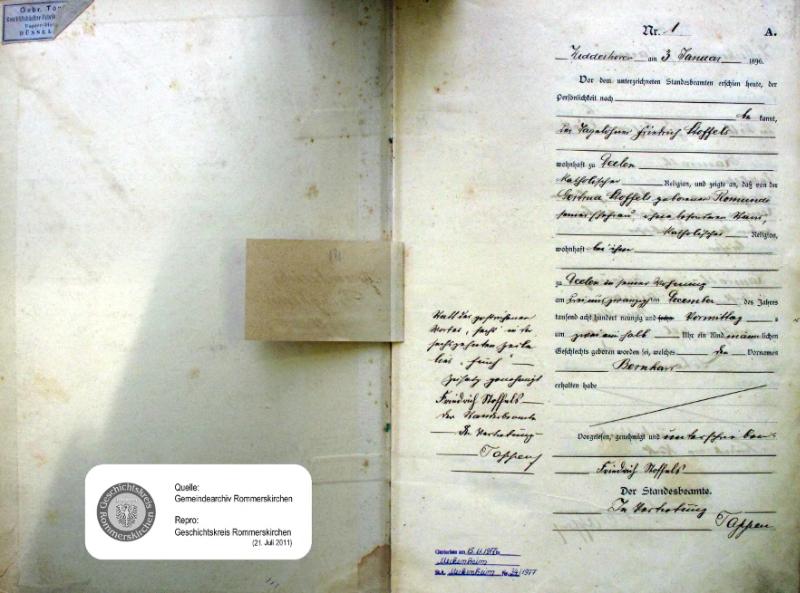 Gebr. To
Geschäftsbücher-Fabrik
DÜSSEL
Nr. 1 A.
am 3 Januar 1896.
Vor dem unterzeichneten Standesbeamten erschien heute, der
Persönlichkeit nach
be kannt,
der Tagelöhner Friedrich Stoffels
wohnhaft zu Deelen
katholischer Religion, und zeigte an, daß von der
Stoffels geborenen Romunde
seiner Ehefrau,
katholischer Religion,
wohnhaft bei ihm
zu Deelen in seiner Wohnung
am dreiundzwanzigsten Dezember des Jahres
tausend acht hundert neunzig und Vormittag s
um zwei ein halb Uhr ein Kind männlichen
Geschlechts geboren worden sei, welches den Vornamen
Bernhard
erhalten habe
Vorgelesen, genehmigt und unterschrieben
Friedrich Stoffels
Der Standesbeamte.
In Vertretung
Tappen
Statt des gestrichenen
Wortes "sechs" in der
sechszehnten Zeile
lies "fünf"
Zusatz genehmigt
Friedrich Stoffels
Der Standesbeamte
In Vertretung
Tappen
Gestorben am 15.11.1977
Meckenheim
Meckenheim Nr. /1977
Geschichtskreis
Rommerskirchen
Quelle:
Gemeindearchiv Rommerskirchen
Repro:
Geschichtskreis Rommerskirchen
(21. Juli 2011)